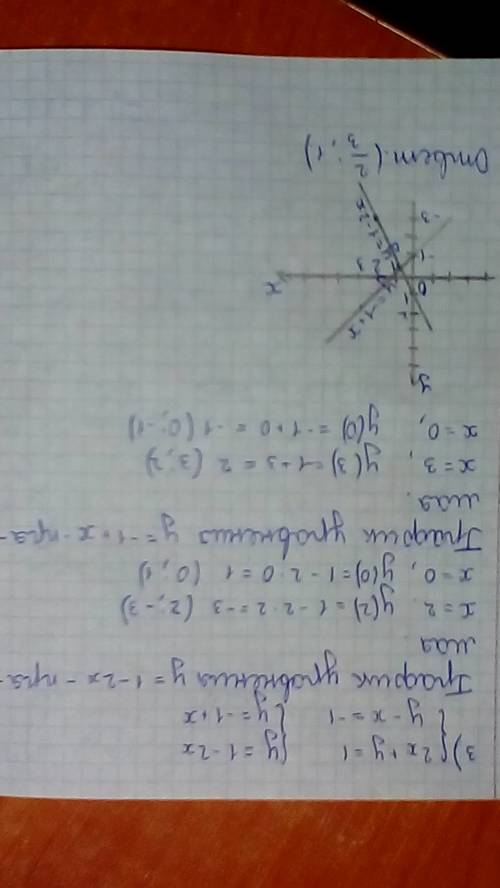 3) { 2x + y = 1 { y = 1 - 2x
{ y - x = -1 { y = -1 + x
График уравнения y = 1 - 2x - пря-
мая
x = 2. y(2) = 1 - 2·2 = -3 (2; -3)
x = 0, y(0) = 1 - 2·0 = 1 (0; 1)
График уравнения y = -1 + x - пря-
мая.
x = 3, y(3) = -1 + 3 = 2 (3; 2)
x = 0, y(0) = -1 + 0 = -1 (0; -1)
y
0
2 3
x
-1
-3
Ответ. (2/3; 1)